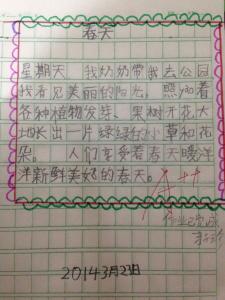 春天
星期天 我奶奶带我去公园
我看见美丽的阳光。照yào着
各种植物发芽、果树开花、大
地长出一片绿绿的小草和花
朵。 人们享受着春天暖洋
洋新鲜美好的春天。
A++
作业已完成
2014 3月23日